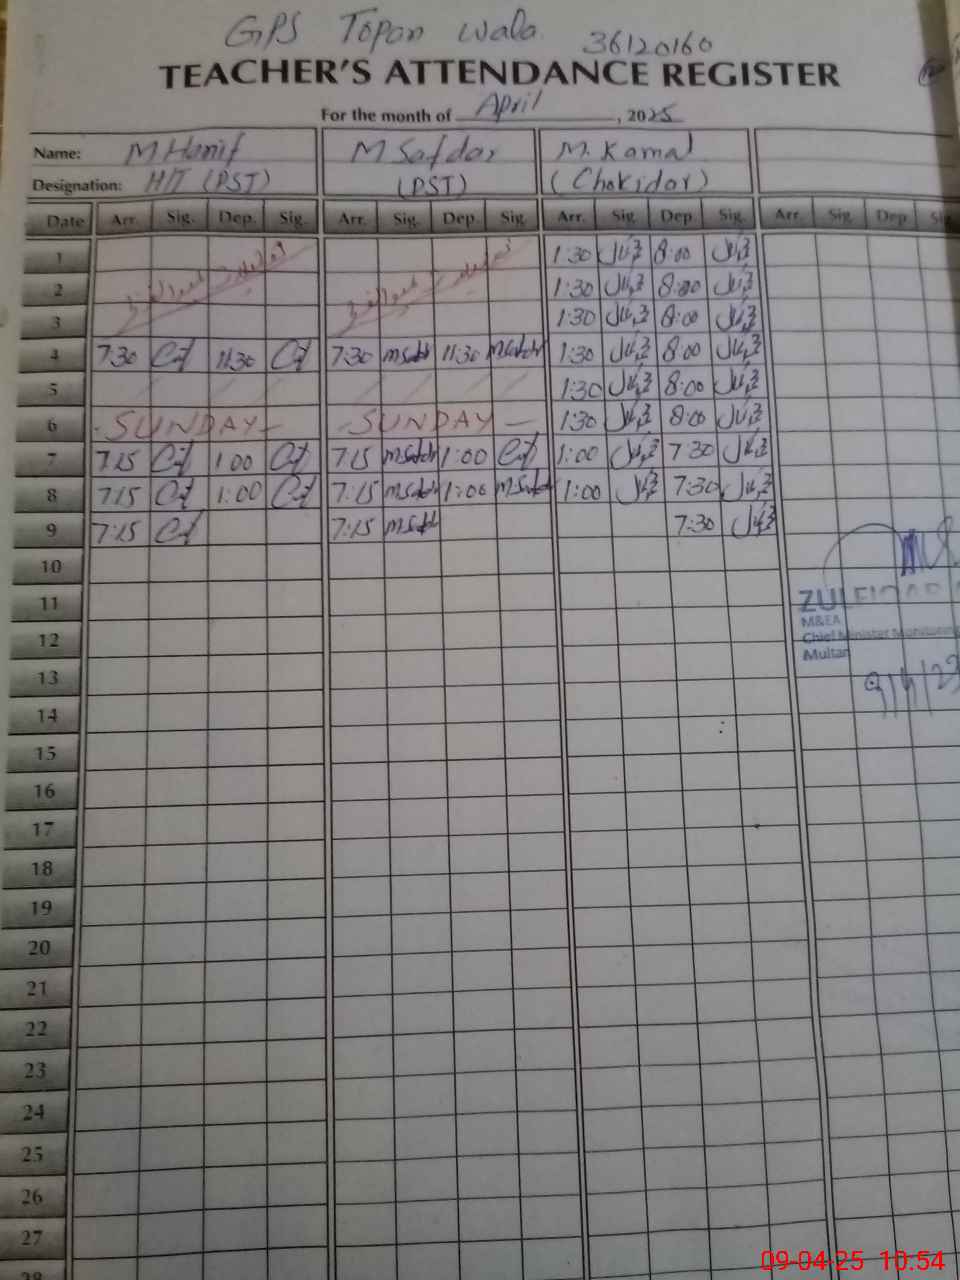 GPS Topan Wala 36120160
TEACHER'S ATTENDANCE REGISTER
For the month of April, 2025
Name: M Hanif M Safdar M. Kamal
Designation: H/T (PST) (PST) (Chokidar)
Date Arr. Sig. Dep. Sig. Arr. Sig. Dep. Sig. Arr. Sig. Dep. Sig. Arr. Sig. Dep Sig.
1 1:30 8:00
2 1:30 8:00
3 1:30 8:00
4 7:30 11:30 7:30 MSafdr 11:30 MSafdr 1:30 8:00
5 1:30 8:00
6 - SUNDAY - - SUNDAY - 1:30 8:00
7 7:15 1:00 7:15 MSafdr 1:00 1:00 7:30
8 7:15 1:00 7:15 MSafdr 1:00 MSafdr 1:00 7:30
9 7:15 7:15 MSafdr 7:30
10
11 ZULFIQAR
M&EA
12 Chief Minister Monitoring
Multan
13 9/4/25
14
15
16
17
18
19
20
21
22
23
24
25
26
27
28
09-04-25 10:54